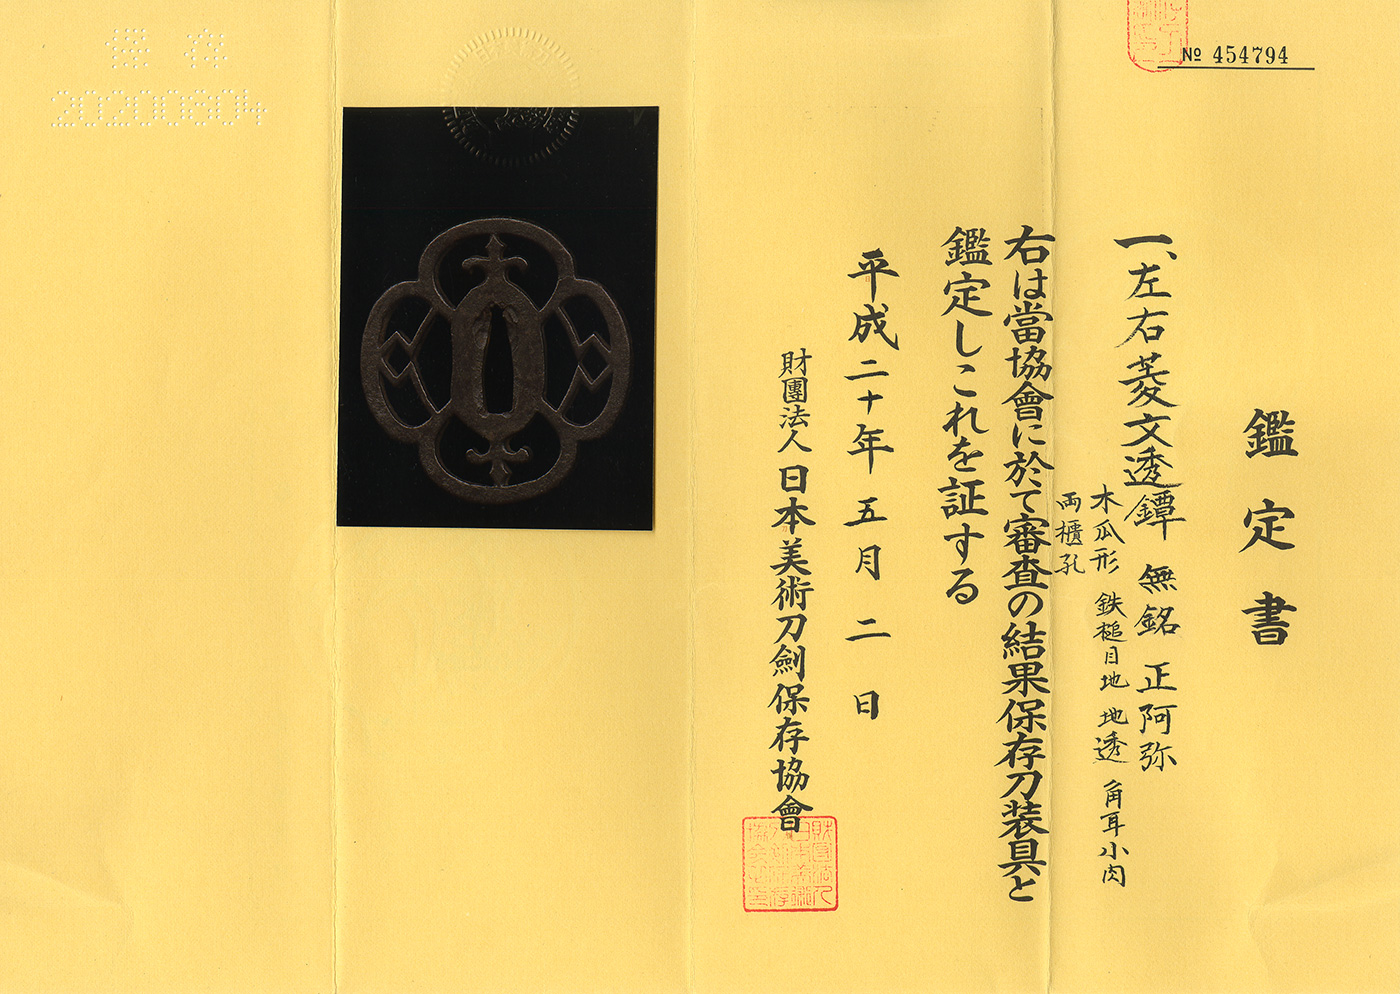 № 454794
鑑定書
一、左右菱文透鐔 無銘 正阿弥
木瓜形 鉄槌目地 地透 角耳小肉
両櫃孔
右は當協會に於て審査の結果保存刀装具と
鑑定しこれを証する
平成二十年五月二日
財團法人日本美術刀劍保存協會
保存
20200604